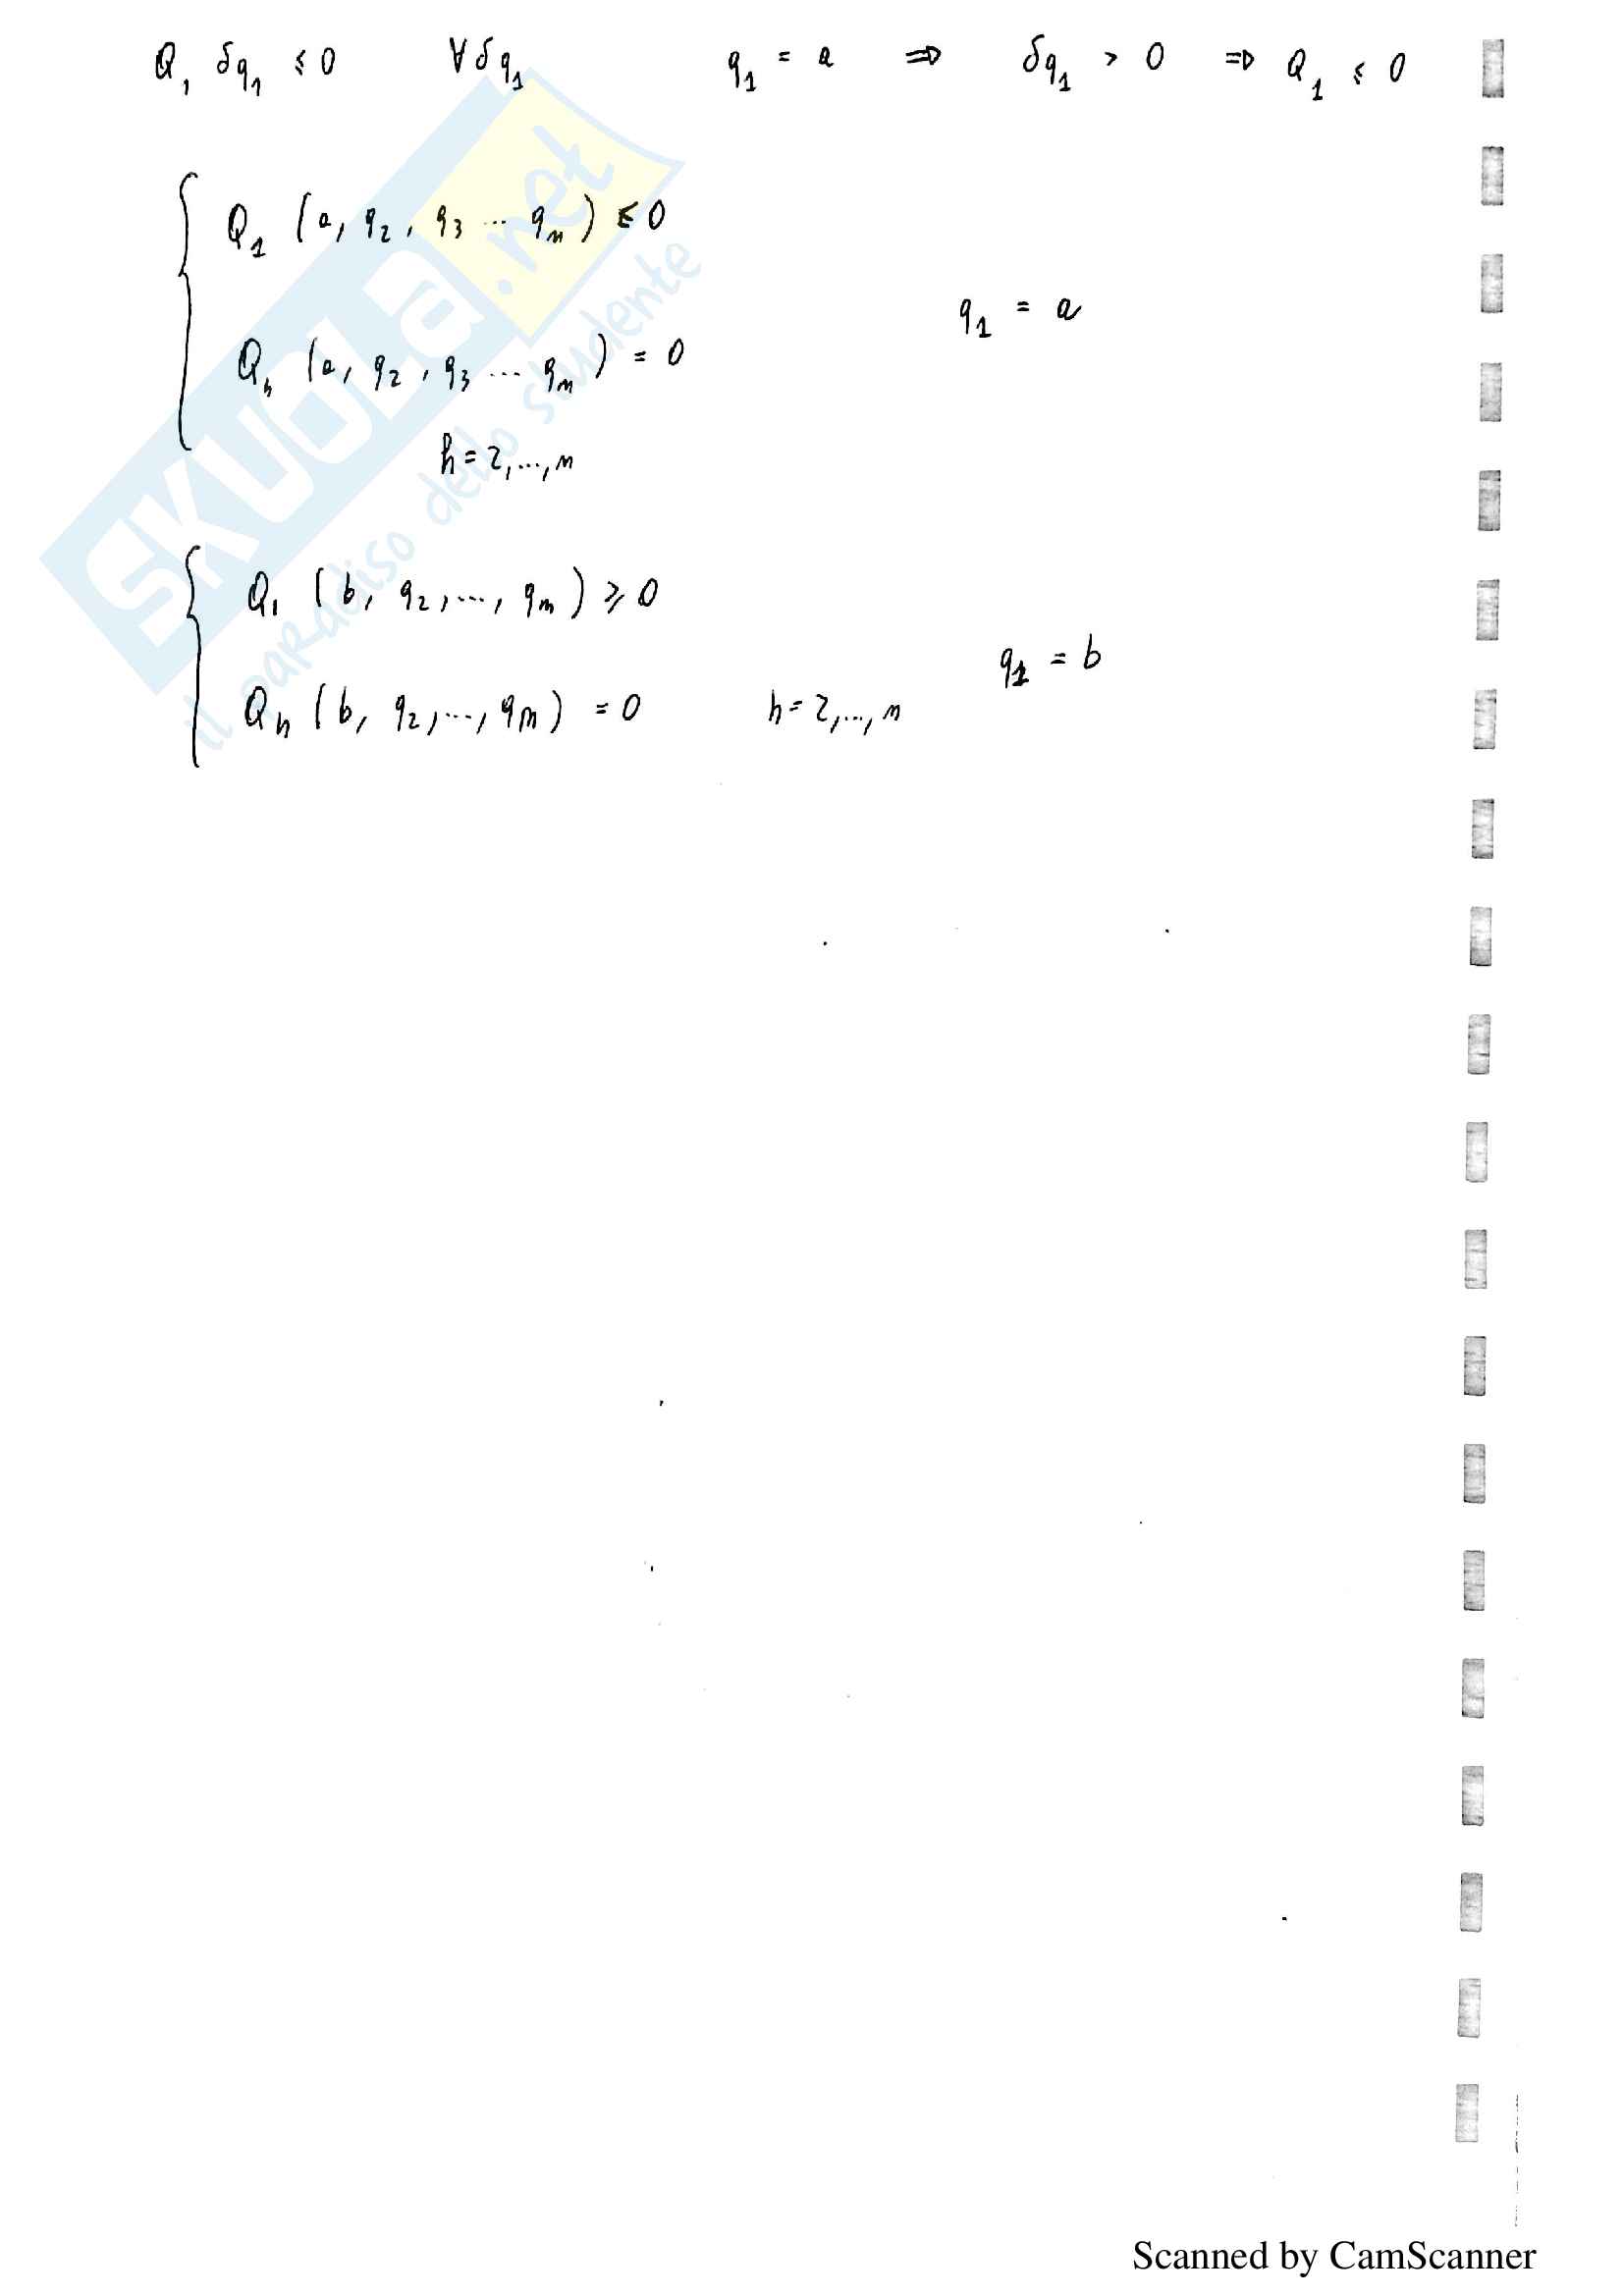 Q₁ δq₁ ≤ 0 ∀ δq₁ q₁ = a ⇒ δq₁ > 0 ⇒ Q₁ ≤ 0
Q₁ (a, q₂, q₃ ... qₙ) ≤ 0
q₁ = a
Qₕ (a, q₂, q₃ ... qₙ) = 0
h = 2, ..., n
Q₁ (b, q₂, ..., qₙ) ≥ 0
q₁ = b
Qₕ (b, q₂, ..., qₙ) = 0 h = 2, ..., n
SKUOLa.net
il paradiso dello studente
Scanned by CamScanner